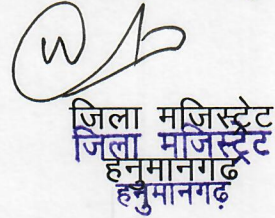 जिला मजिस्ट्रेट
जिला मजिस्ट्रेट
हनुमानगढ
हनुमानगढ़